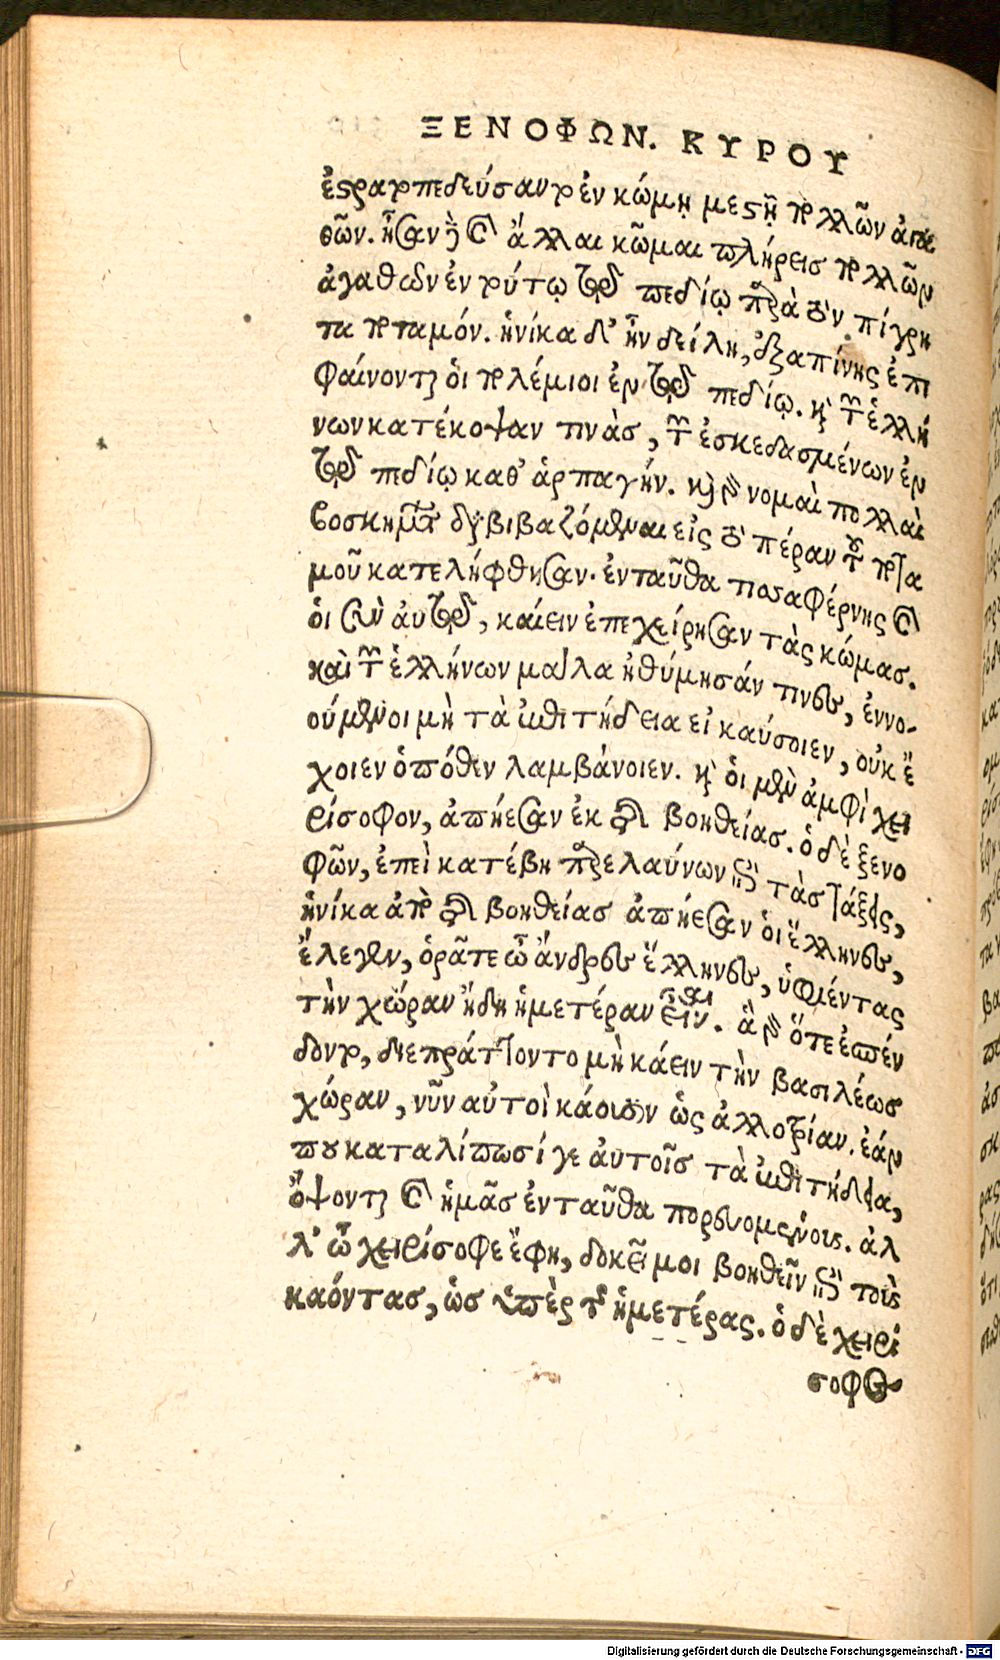 ΞΕΝΟΦΩΝ. ΚΥΡΟΥ
ἐστρατοπεδεύσαντο ἐν κώμῃ μεστῇ πολλῶν ἀγα
θῶν. ἦσαν δὲ καὶ ἄλλαι κῶμαι πλήρεισ πολλῶν
ἀγαθῶν ἐν τούτῳ τῷ πεδίῳ παρὰ τὸν τίγρη
τα ποταμόν. ἡνίκα δ' ἦν δείλη, ἐξαπίνης ἐπι
φαίνονται ὁι πολέμιοι ἐν τῷ πεδίῳ. καὶ τῶν ἑλλή
νων κατέκοψαν τινὰσ, τῶν ἐσκεδασμένων ἐν
τῷ πεδίῳ καθ' ἁρπαγήν. καὶ γὰρ νομαὶ πολλαὶ
βοσκημάτων διαβιβαζόμεναι εἰς τὸ πέραν τοῦ ποτα
μοῦ κατελήφθησαν. ἐνταῦθα τισσαφέρνης καὶ
ὁι σὺν ἀυτῷ, καίειν ἐπεχείρησαν τὰς κώμασ.
καὶ τῶν ἑλλήνων μάλα ἠθύμησάν τινες, ἐννο-
ούμενοι μὴ τὰ ἐπιτήδεια εἰ καύσοιεν, οὐκ ἔ
χοιεν ὁπόθεν λαμβάνοιεν. καὶ ὁι μὲν ἀμφὶ χει
ρίσοφον, ἀπῄεσαν ἐκ τῆς βοηθείασ. ὁ δὲ ξενο
φῶν, ἐπεὶ κατέβη παρελαύνων τὰσ τάξεις,
ἡνίκα ἀπὸ τῆς βοηθείασ ἀπῄεσαν ὁι ἕλληνες,
ἔλεγεν, ὁρᾶτε ὦ ἄνδρες ἕλληνες, ὑφιέντας
τὴν χώραν ἤδη ἡμετέραν εἶναι. ἃ γὰρ ὅτε ἐσπέν
δοντο, διεπράττοντο μὴ κάειν τὴν βασιλέωσ
χώραν, νῦν αὐτοὶ κάουσιν ὡς ἀλλοτρίαν. ἐάν
που καταλίπωσί γε ἀυτοῖσ τὰ ἐπιτήδεια,
ὄψονται καὶ ἡμᾶσ ἐνταῦθα πορευομένους. ἀλ
λ' ὦ χειρίσοφε ἔφη, δοκεῖ μοι βοηθεῖν ἐπὶ τοὺς
καόντασ, ὡσ ὑπὲρ τῆς ἡμετέρας. ὁ δὲ χειρί
σοφος
Digitalisierung gefördert durch die Deutsche Forschungsgemeinschaft - DFG